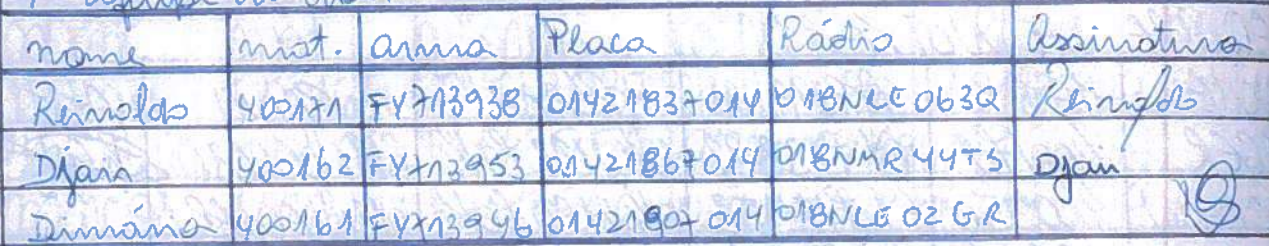 nome mat. arma Placa Rádio Assinatura
Reinaldo 400171 FY713938 01421837014 018NLE063Q Reinaldo
Djair 400162 FY713953 01421867014 018NMR44TS Djair
Dimário 400161 FY713946 01421907014 018NLE02GR